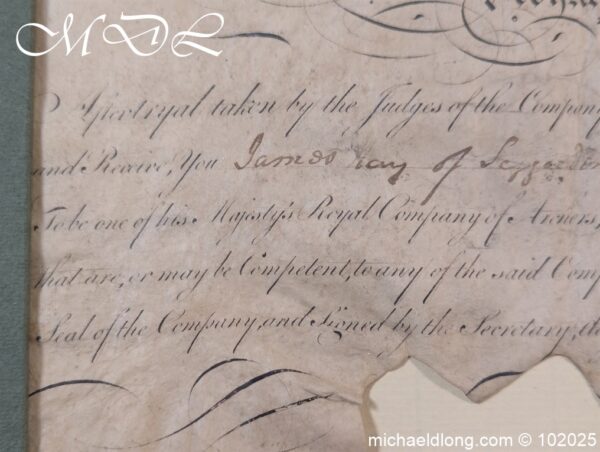 MDL
Royal
After tryal taken by the Judges of the Company
and Receive, You James Hay of
To be one of his Majesty's Royal Company of Archers,
that are, or may be Competent, to any of the said Comp
Seal of the Company, and Signed by the Secretary,
michaeldlong.com © 102025